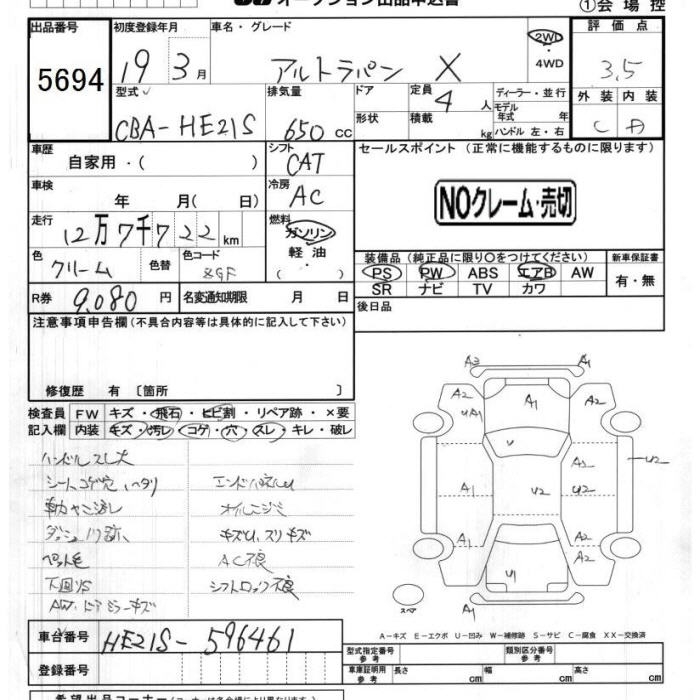 オークション出品申込書
①会場控
出品番号
5694
初度登録年月
19 3月
車名・グレード
アルトラパン X
2WD
4WD
評価点
3.5
型式
CBA-HE21S
排気量
650 cc
ドア
形状
定員
4人
積載
kg
ディーラー・並行
モデル年式 年
ハンドル 左・右
外装 内装
C A
車歴
自家用・( )
シフト
CAT
セールスポイント (正常に機能するものに限ります)
車検
年 月( 日)
冷房
AC
NOクレーム・売切
走行
12万7千722km
燃料
ガソリン
軽油
( )
色
クリーム
色替
色コード
装備品 (純正品に限り○をつけてください)
新車保証書
PS PW ABS エアB AW
有・無
SR ナビ TV カワ
R券
9,080円
名変通知期限 月 日
後日品
注意事項申告欄 (不具合内容等は具体的に記入して下さい)
修復歴 有 〔箇所 〕
検査員記入欄
FW キズ・飛石・ヒビ割・リペア跡・×要
内装 キズ・汚レ・コゲ・穴・スレ・キレ・破レ
ハンドルスレ大
シートコゲ穴 ヘタリ
ペット毛
下回りS
AW・ドアミラーキズ
オイルニジミ
キズU、スリキズ
AC不良
シフトロック不良
A3 A1
A2 A1 A2
UA1
U
A2
U2
A1 U2 U2
A1 A2
A2
U1
A1
スペア
A-キズ E-エクボ U-凹み W-補修跡 S-サビ C-腐食 XX-交換済
車台番号
HE21S-596461
登録番号
型式指定番号 参考
類別区分番号 参考
車庫証明用 参考
長さ cm 幅 cm 高さ cm
希望出品コーナー